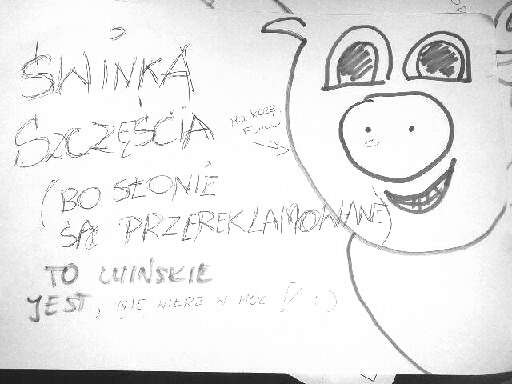 ŚWINKA
SZCZĘŚCIA
(BO SŁONIE
SĄ PRZEREKLAMOWANE)
TO
JEST, NIE WIERZ W MOC